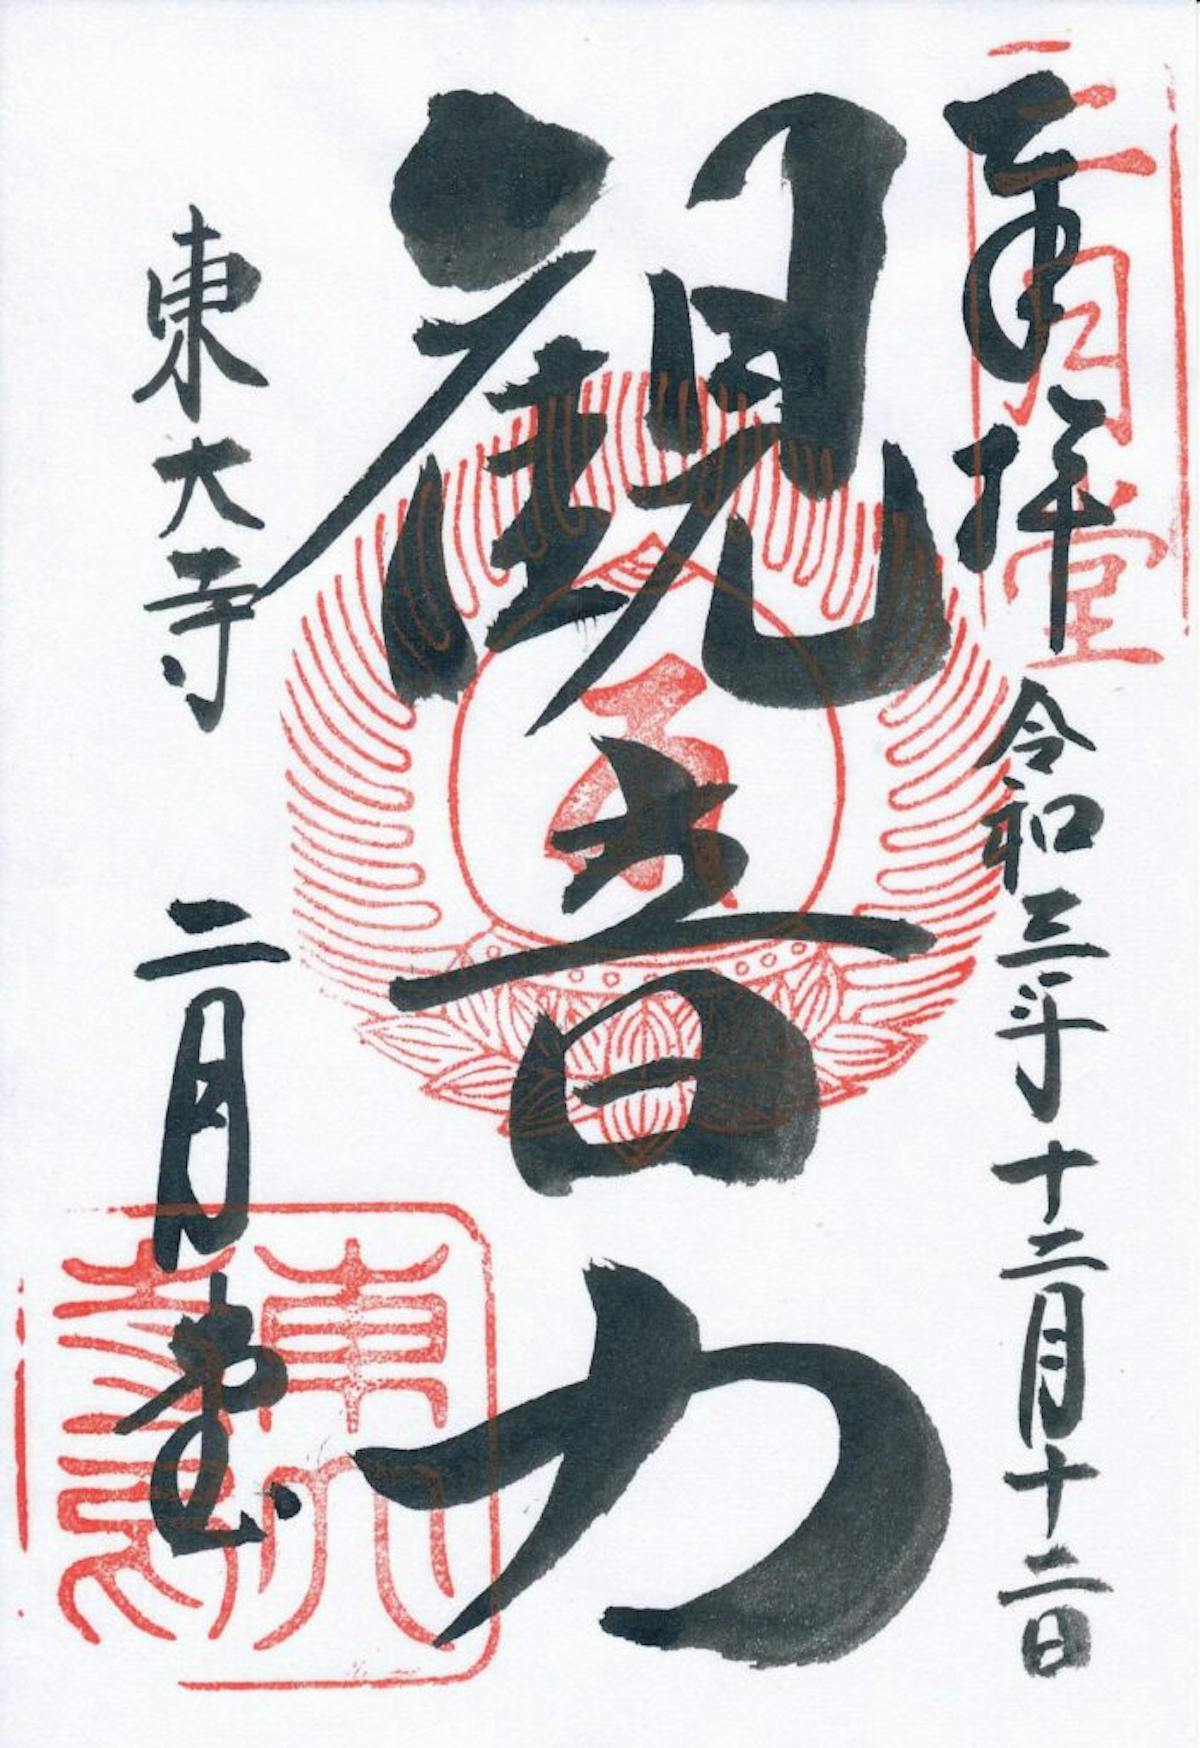 奉拝 令和三年十二月十二日
二月堂
観音力
東大寺 二月堂
東大寺